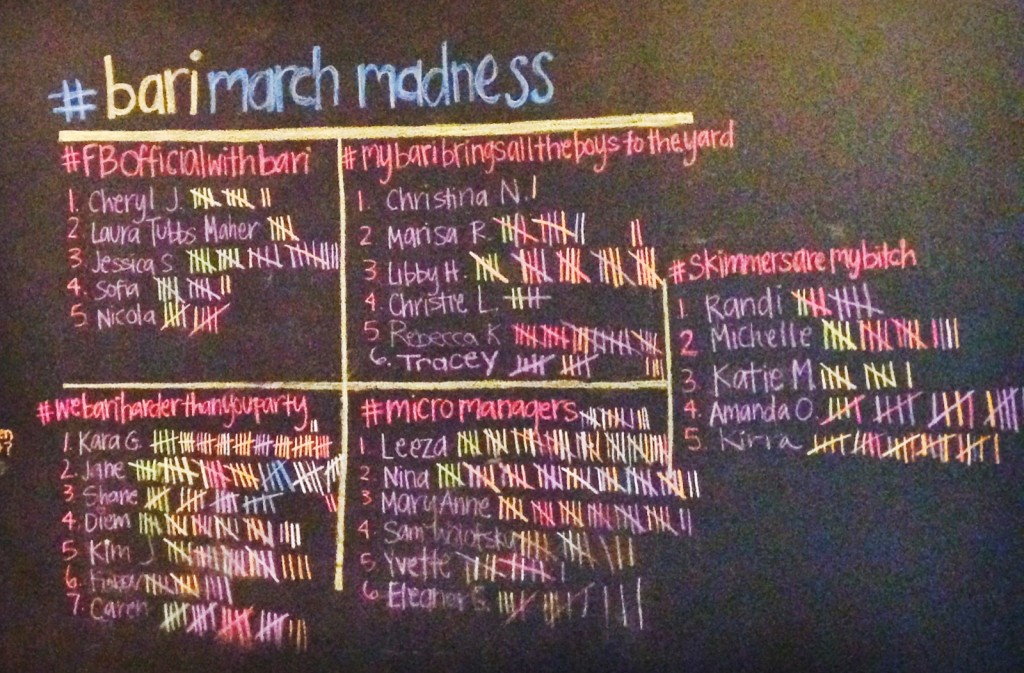 #bari march madness
#FBofficialwithbari
1. Cheryl J.
2. Laura Tubbs Maher
3. Jessica S.
4. Sofia
5. Nicola
#mybaribringsalltheboystotheyard
1. Christina N.
2. Marisa R.
3. Libby H.
4. Christie L.
5. Rebecca K
6. Tracey
#skimmersaremybitch
1. Randi
2. Michelle
3. Katie M.
4. Amanda O.
5. Kirra
#webariharderthanyouparty
1. Kara G.
2. Jane
3. Shane
4. Diem
5. Kim J
6.
7. Caren
#micromanagers
1. Leeza
2. Nina
3. MaryAnne
4. Sam
5. Yvette
6. Eleanor S.